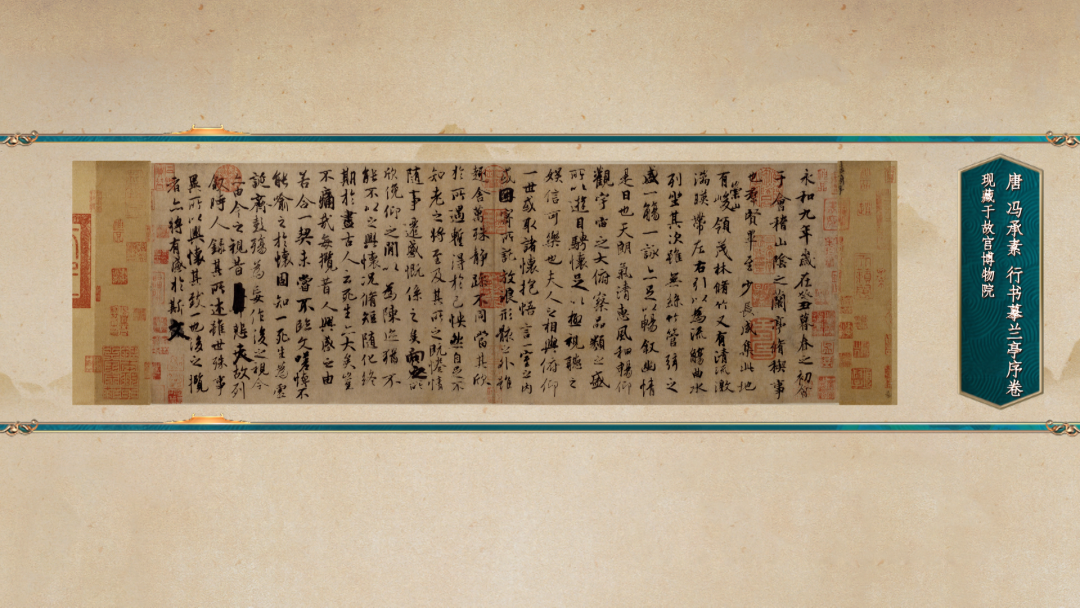 唐 冯承素 行书摹兰亭序卷
现藏于故宫博物院
永和九年歲在癸丑暮春之初會
于會稽山陰之蘭亭脩禊事
也群賢畢至少長咸集此地
有崇山峻領茂林脩竹又有清流激
湍暎帶左右引以為流觴曲水
列坐其次雖無絲竹管弦之
盛一觴一詠亦足以暢敘幽情
是日也天朗氣清惠風和暢仰
觀宇宙之大俯察品類之盛
所以遊目騁懷足以極視聽之
娛信可樂也夫人之相與俯仰
一世或取諸懷抱悟言一室之內
或因寄所託放浪形骸之外雖
趣舍萬殊靜躁不同當其欣
於所遇蹔得於己怏然自足不
知老之將至及其所之既惓情
隨事遷感慨係之矣向之所
欣俛仰之閒以為陳迹猶不
能不以之興懷況脩短隨化終
期於盡古人云死生亦大矣豈
不痛哉每攬昔人興感之由
若合一契未嘗不臨文嗟悼不
能喻之於懷固知一死生為虛
誕齊彭殤為妄作後之視今
亦由今之視昔悲夫故列
敘時人錄其所述雖世殊事
異所以興懷其致一也後之攬
者亦將有感於斯文